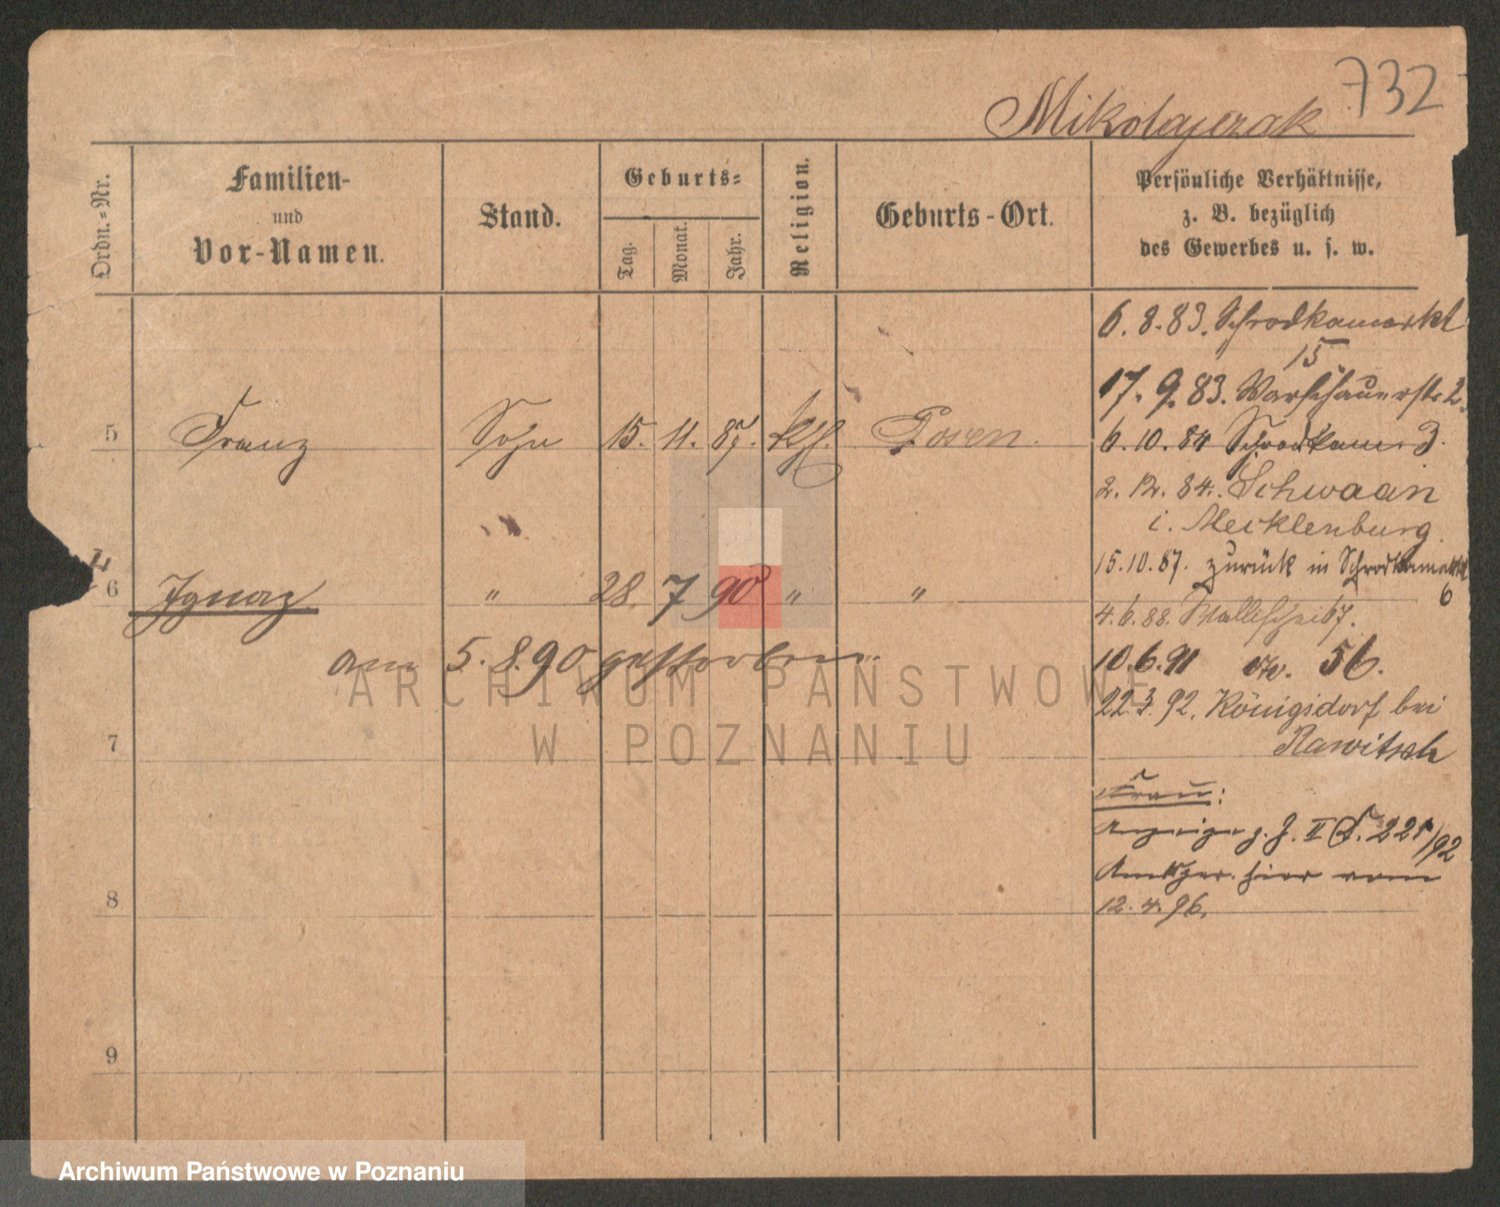 732
Mikolajczak
Ordn.-Nr.
Familien-
und
Vor-Namen.
Stand.
Geburts-
Tag.
Monat.
Jahr.
Religion.
Geburts-Ort.
Persönliche Verhältnisse,
z. B. bezüglich
des Gewerbes u. s. w.
6. 8. 83. Schrodkamarkt
15
17. 9. 83. Warschauerstr 2.
5 Franz Sohn 15. 11. 87. kth. Posen.
6. 10. 84 Schrodkam. 3.
2. 12. 84. Schwaan
i. Mecklenburg.
15. 10. 87. zurück in Schrodkamarkt
6
6 Ignaz " 28. 7 90 " "
4. 6. 88. Wallischei 67.
am 5. 8. 90 gestorben.
10. 6. 91 56.
22. 3. 92. Königsdorf bei
Rawitsch
7
Frau:
II 221/92
hier vom
12. 4. 96.
8
9
ARCHIWUM PAŃSTWOWE
W POZNANIU
Archiwum Państwowe w Poznaniu